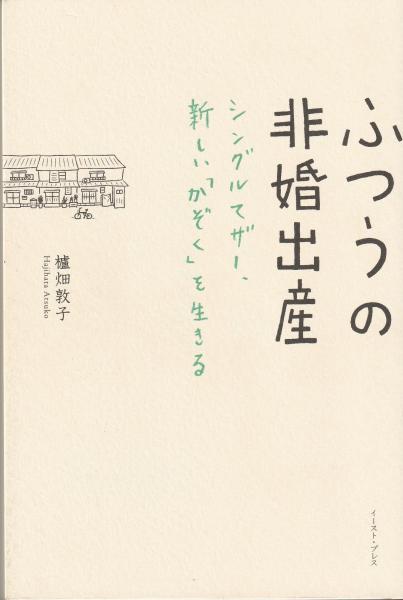 ふつうの
非婚出産
シングルマザー、
新しい「かぞく」を生きる
櫨畑敦子
Hajihata Atsuko
イースト・プレス